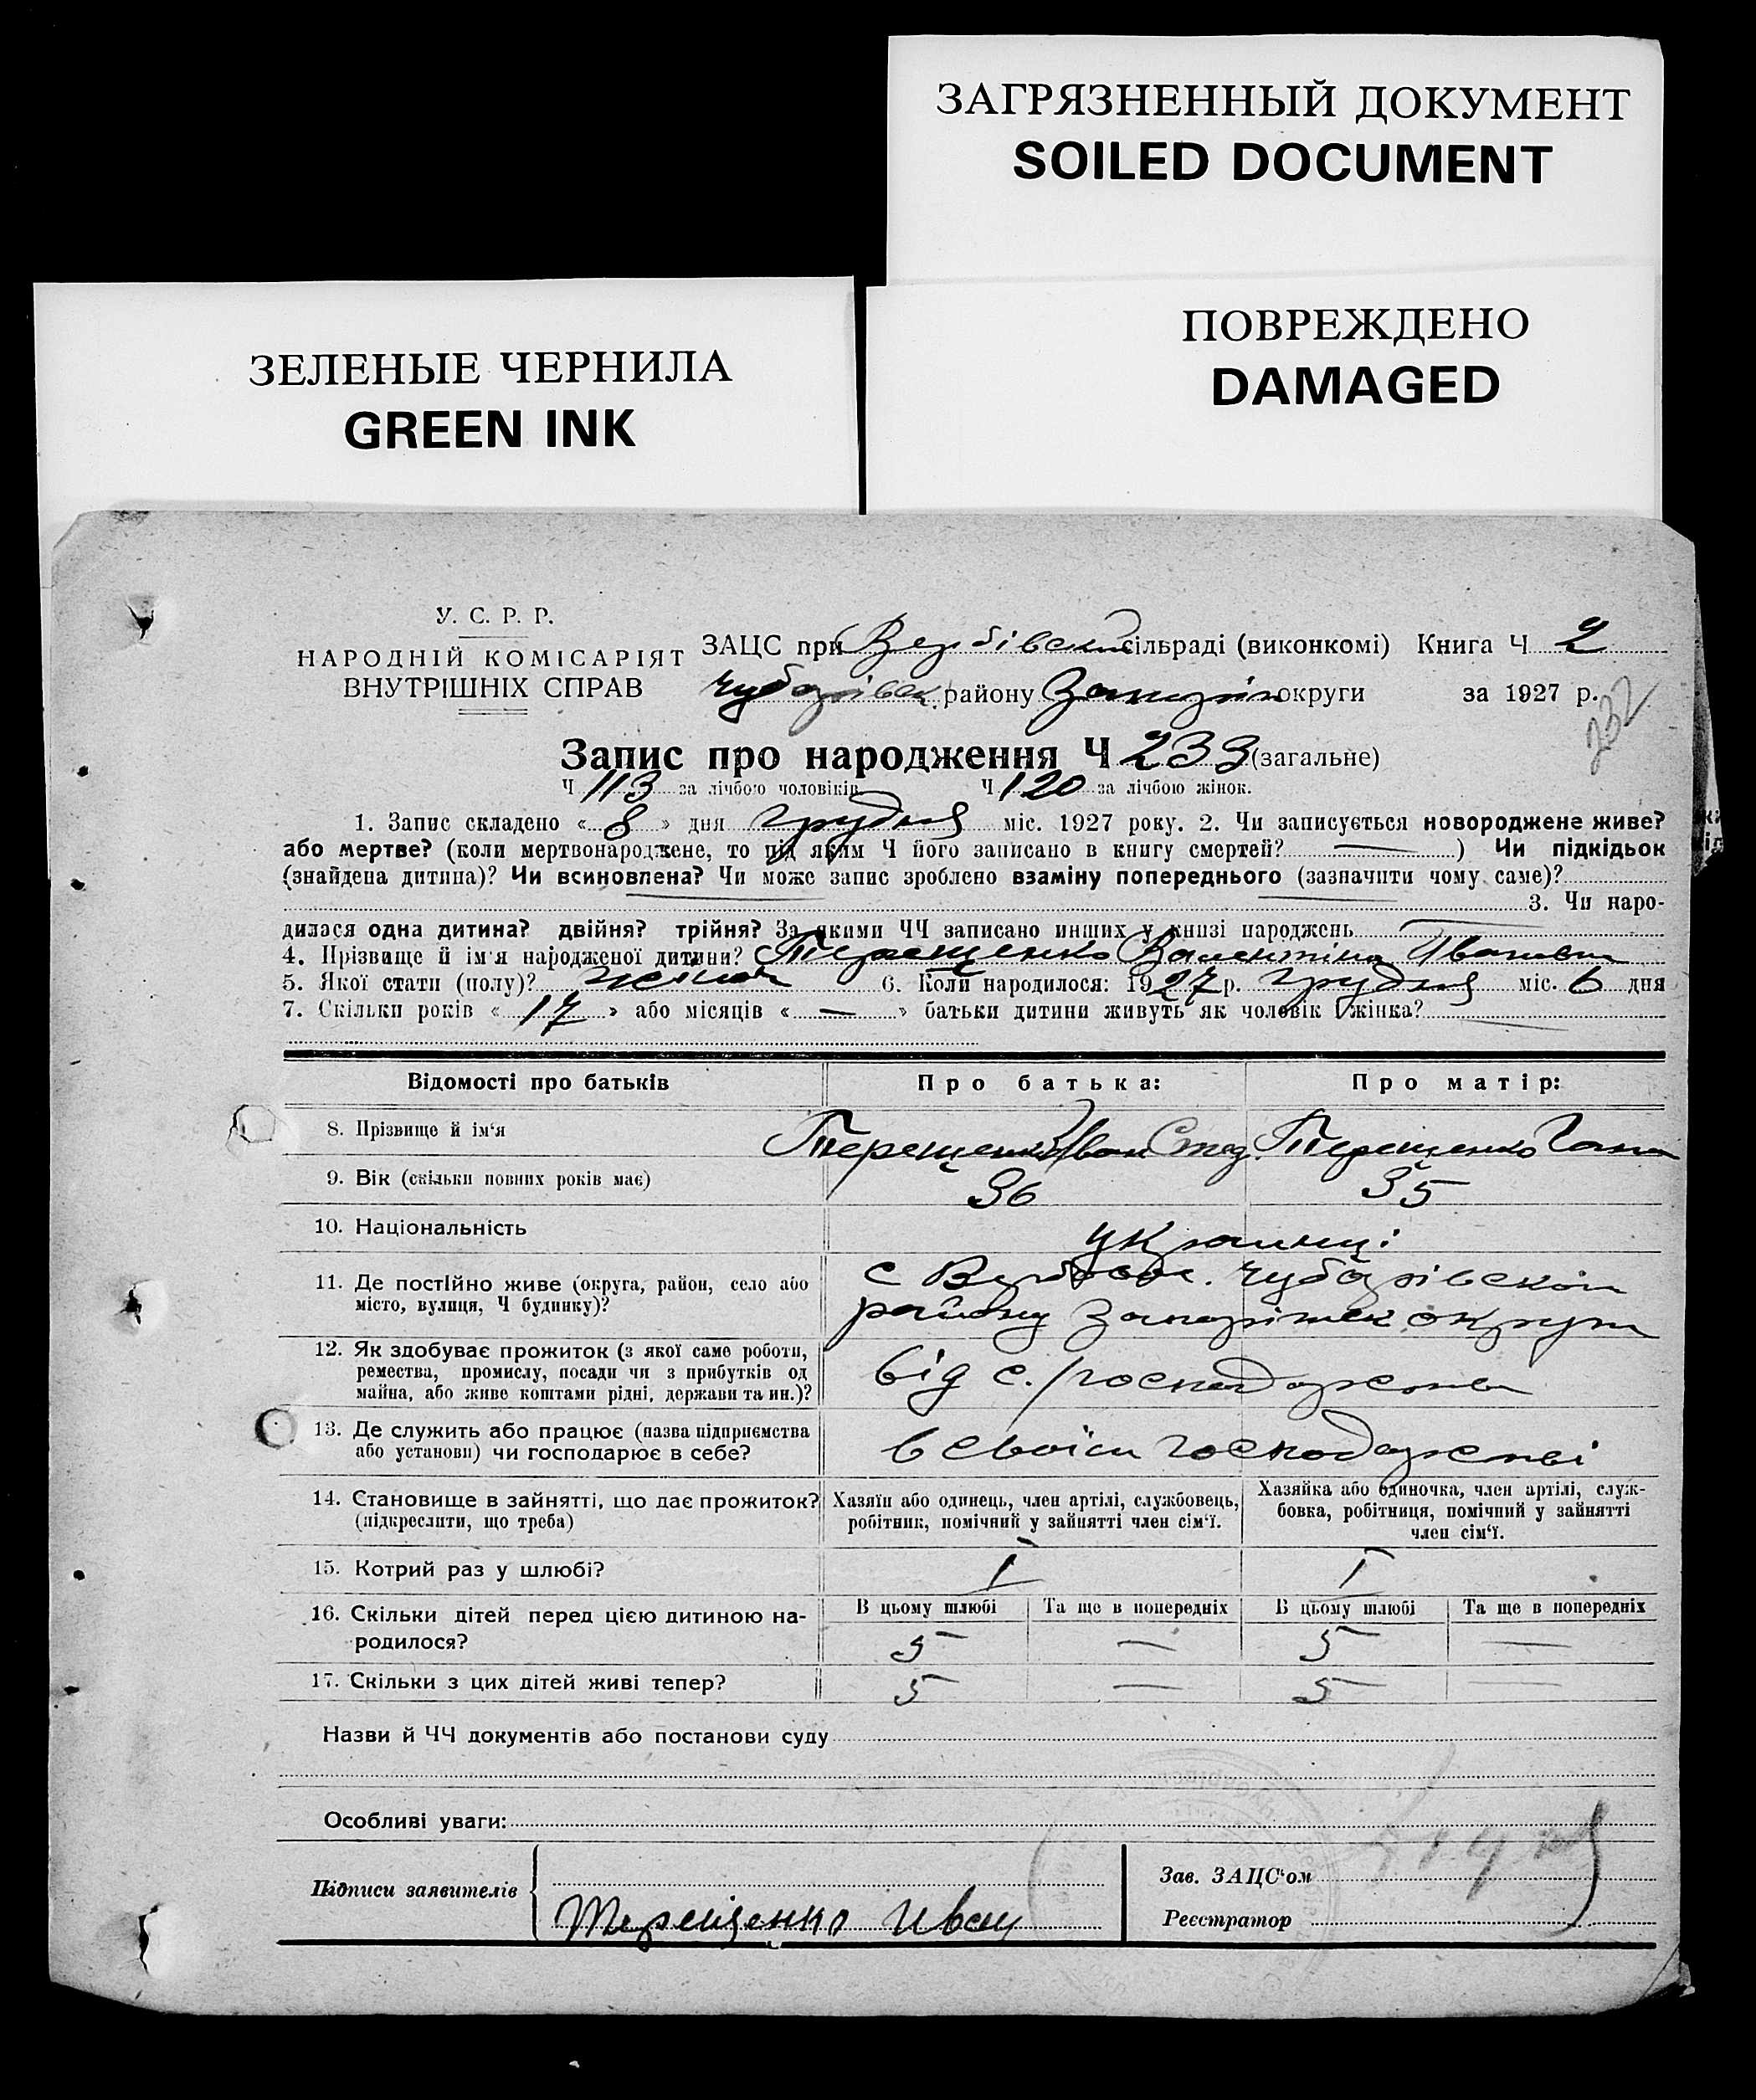 ЗАГРЯЗНЕННЫЙ ДОКУМЕНТ
SOILED DOCUMENT
ПОВРЕЖДЕНО
DAMAGED
ЗЕЛЕНЫЕ ЧЕРНИЛА
GREEN INK
У. С. Р. Р.
НАРОДНІЙ КОМІСАРІЯТ
ВНУТРІШНІХ СПРАВ
ЗАЦС при Вербівській сільраді (виконкомі) Книга Ч 2
Чубарівськ. району Запоріж округи за 1927 р.
232
Запис про народження Ч 233 (загальне)
Ч 113 за лічбою чоловіків Ч 120 за лічбою жінок.
1. Запис складено « 8 » дня грудня міс. 1927 року. 2. Чи записується новороджене живе?
або мертве? (коли мертвонароджене, то під яким Ч його записано в книгу смертей? — ) Чи підкідьок
(знайдена дитина)? Чи всиновлена? Чи може запис зроблено взаміну попереднього (зазначити чому саме)?
3. Чи наро-
дилася одна дитина? двійня? трійня? За якими ЧЧ записано инших у книзі народжень
4. Прізвище й ім'я народженої дитини? Терещенко Валентіна Івановна
5. Якої стати (полу)? жіноч 6. Коли народилося: 1927 р. грудня міс. 6 дня
7. Скільки років « 17 » або місяців « — » батьки дитини живуть як чоловік і жінка?
Відомості про батьків Про батька: Про матір:
8. Прізвище й ім'я Терещенко Іван Терещенко Гана
9. Вік (скільки повних років має) 36 35
10. Національність українці
11. Де постійно живе (округа, район, село або
місто, вулиця, Ч будинку)?
с Вербове. Чубарівской
району Запоріжск округи
12. Як здобуває прожиток (з якої саме роботи,
ремества, промислу, посади чи з прибутків од
майна, або живе коштами рідні, держави та ин.)?
від с./господарства
13. Де служить або працює (назва підприємства
або установи) чи господарює в себе?
в своїм господарстві
14. Становище в зайнятті, що дає прожиток?
(підкреслити, що треба)
Хазяїн або одинець, член артілі, службовець,
робітник, помічний у зайнятті член сім'ї.
Хазяйка або одиночка, член артілі, служ-
бовка, робітниця, помічний у зайнятті
член сім'ї.
15. Котрий раз у шлюбі? I I
16. Скільки дітей перед цією дитиною на-
родилося?
В цьому шлюбі Та ще в попередніх В цьому шлюбі Та ще в попередніх
5 — 5 —
17. Скільки з цих дітей живі тепер? 5 — 5 —
Назви й ЧЧ документів або постанови суду
Особливі уваги:
Підписи заявителів
Терещенко Иван
Зав. ЗАЦС'ом
Реєстратор